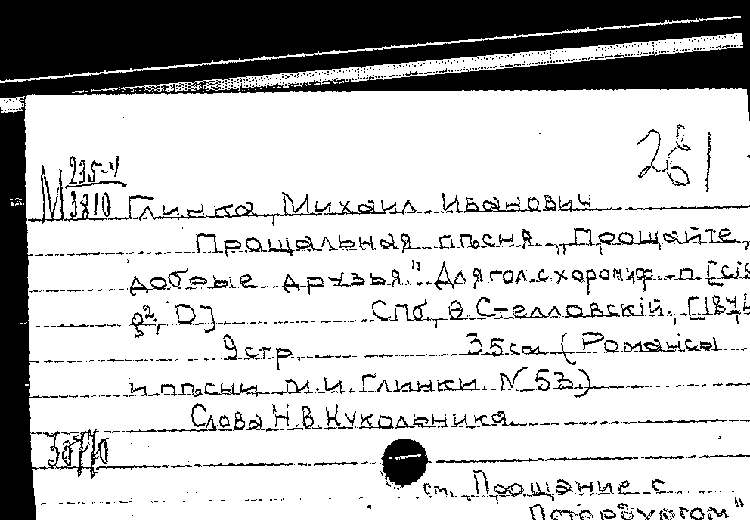 261
М 235-4
3810
Глинка, Михаил Иванович
Прощальная пѣсня „Прощайте,
добрые друзья" Для гол. с хором и ф.-п. [cis
g², D] СПб, Ѳ. Стелловскій, [187
9 стр. 35см (Романсы
и пѣсни М.И. Глинки. N 53.)
Слова Н.В. Кукольника
см. „Прощание с
Петербургом"